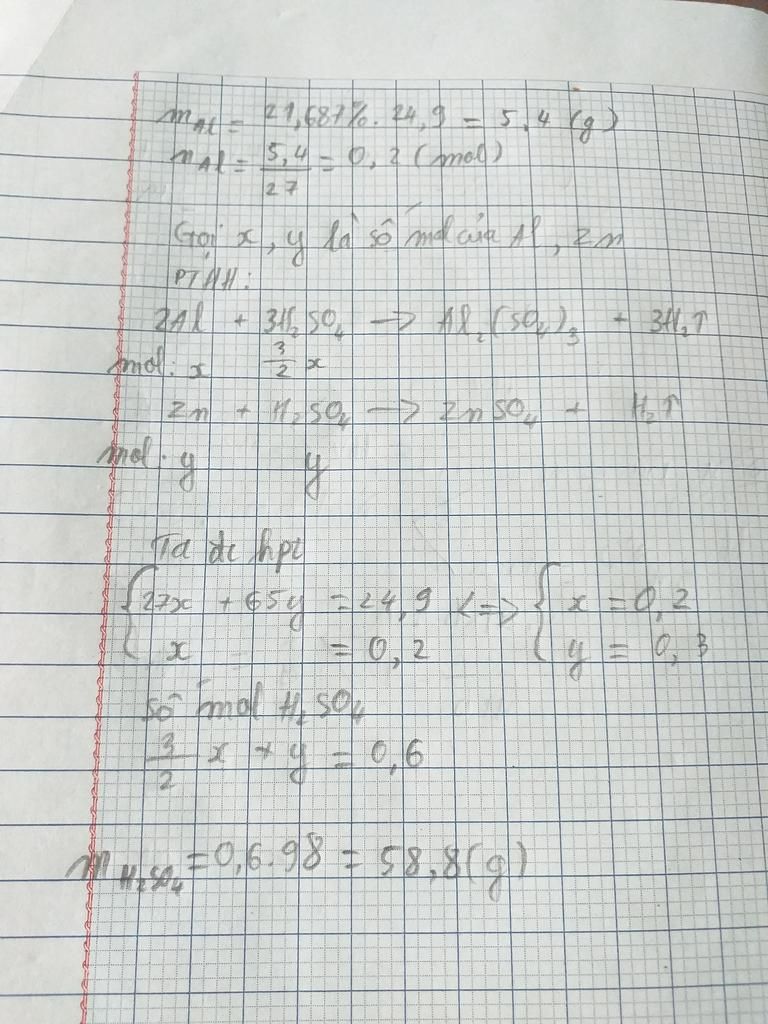 mAl = 21,687%. 24,9 = 5,4 (g)
nAl = 5,4/27 = 0,2 (mol)
Gọi x, y là số mol của Al, Zn
PTHH:
2Al + 3H₂SO₄ → Al₂(SO₄)₃ + 3H₂↑
mol: x 3/2 x
Zn + H₂SO₄ → ZnSO₄ + H₂↑
mol: y y
Ta đc hpt
{ 27x + 65y = 24,9 <=> { x = 0,2
{ x = 0,2 { y = 0,3
số mol H₂SO₄
3/2 x + y = 0,6
mH₂SO₄ = 0,6.98 = 58,8(g)